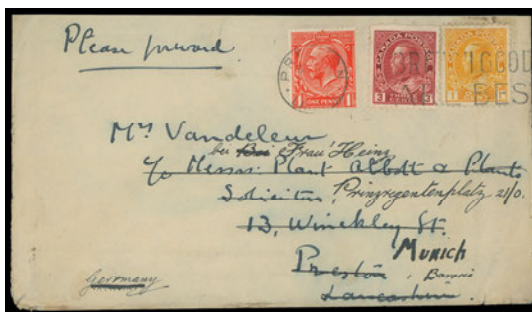 Please forward
PR
ONE PENNY
CANADA POSTAGE
3 3
CANADA POSTAGE
1
BRITISH GOODS
ARE BEST
Mrs Vandeleur
bei Frau Heinz
c/o Messrs. Plant Abbott & Plant
Solicitors Prinzregentenplatz 21/0.
13, Winckley St.
Munich
Preston, Bavaria
Lancashire.
Germany